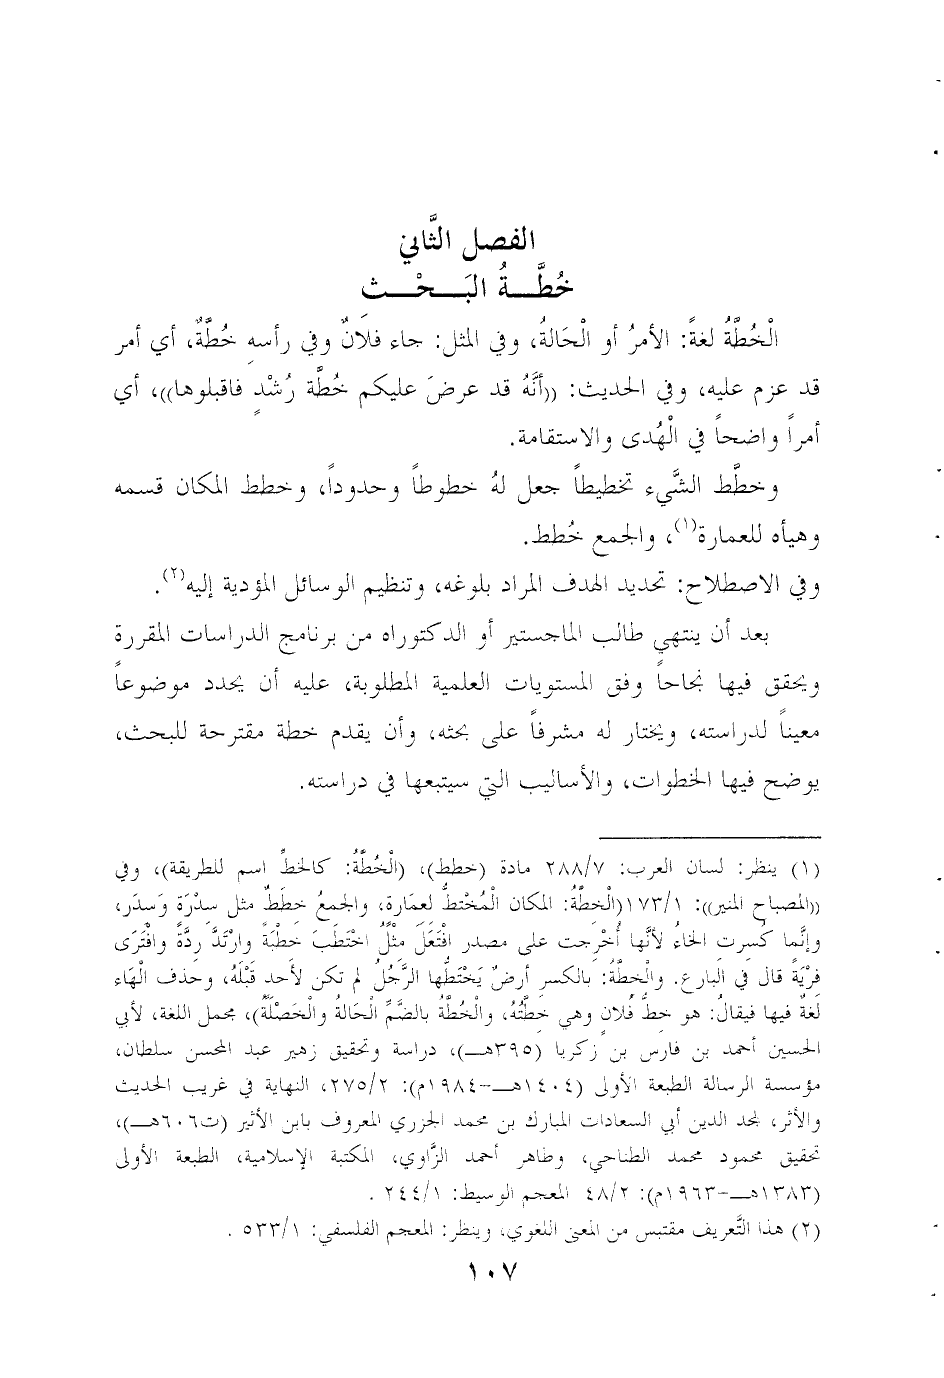 الفصل الثَّاني
خُطَّـــةُ البَـــحْـــث
الْخُطَّةُ لغةً: الأمرُ أو الْحَالةُ، وفي المثل: جاء فلانٌ وفي رأسهِ خُطَّةٌ، أي أمر
قد عزم عليه، وفي الحديث: ((أنَّهُ قد عرضَ عليكم خُطَّة رُشْدٍ فاقبلوها))، أي
أمراً واضحاً في الْهُدى والاستقامة.
وخطَّط الشَّيء تخطيطاً جعل لهُ خطوطاً وحدوداً، وخطط المكان قسمه
وهيأه للعمارة(١)، والجمع خُطط.
وفي الاصطلاح: تحديد الهدف المراد بلوغه، وتنظيم الوسائل المؤدية إليه(٢).
بعد أن ينتهي طالب الماجستير أو الدكتوراه من برنامج الدراسات المقررة
ويحقق فيها نجاحاً وفق المستويات العلمية المطلوبة، عليه أن يحدد موضوعاً
معيناً لدراسته، ويختار له مشرفاً على بحثه، وأن يقدم خطة مقترحة للبحث،
يوضح فيها الخطوات، والأساليب التي سيتبعها في دراسته.
(١) ينظر: لسان العرب: ٢٨٨/٧ مادة (خطط)، (الْخُطَّةُ: كالخطِّ اسم للطريقة)، وفي
((المصباح المنير)): ١٧٣/١(الْخطَّةُ: المكان الْمُخْتطُّ لعمارة، والجمعُ خططٌ مثل سدْرَة وَسدَر،
وإنَّما كُسرت الخاءُ لأنَّها أُخْرجت على مصدر افْتَعَلَ مثْلُ اخْتَطَبَ خطْبَةً وارْتَدَّ ردَّةً وافْتَرَى
فرْيَةً قال في البارع. والْخطَّة: بالكسر أرضٌ يَخْتَطُّها الرَّجُلُ لم تكن لأحد قَبْلَهُ، وحذف الْهَاء
لغةٌ فيها فيقالُ: هو خطُّ فُلان وهي خطَّتُهُ، والْخُطَّة بالضَّمِّ الْحَالةُ والْخَصْلَةُ)، مجمل اللغة، لأبي
الحسين أحمد بن فارس بن زكريا (٣٩٥هــ)، دراسة وتحقيق زهير عبد المحسن سلطان،
مؤسسة الرسالة الطبعة الأولى (١٤٠٤هــ-١٩٨٤م): ٢٧٥/٢، النهاية في غريب الحديث
والأثر، لمجد الدين أبي السعادات المبارك بن محمد الجزري المعروف بابن الأثير (ت٦٠٦هــ)،
تحقيق محمود محمد الطناحي، وطاهر أحمد الزَّاوي، المكتبة الإسلامية، الطبعة الأولى
(١٣٨٣هــ-١٩٦٣م): ٤٨/٢ المعجم الوسيط: ٢٤٤/١ .
(٢) هذا التَّعريف مقتبس من المعنى اللغوي، وينظر: المعجم الفلسفي: ٥٣٣/١ .
١٠٧